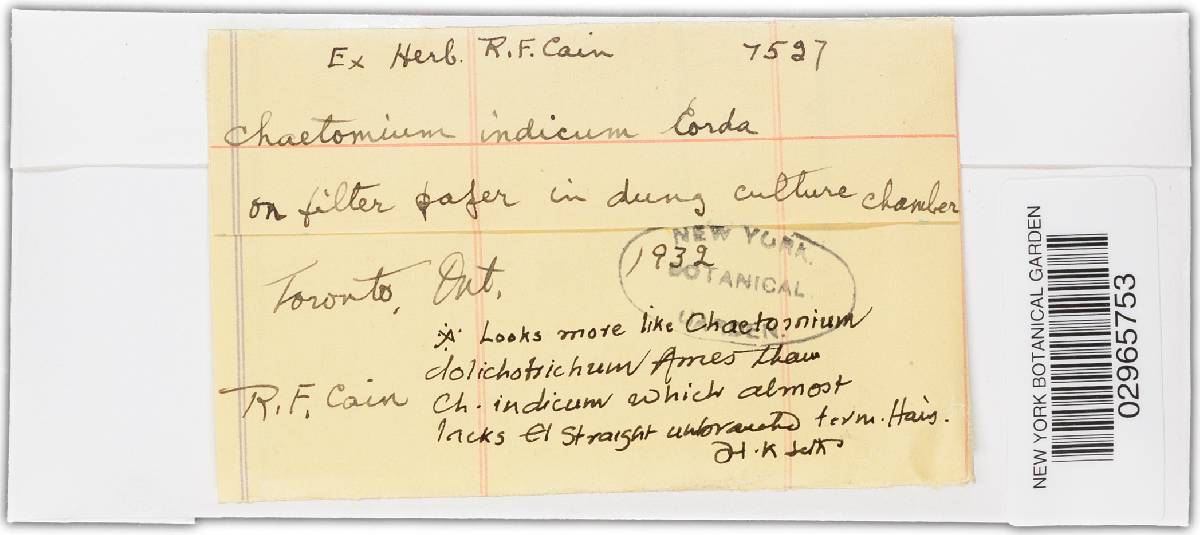 Ex Herb. R.F. Cain 7527
Chaetomium indicum Corda
on filter paper in dung culture chamber
1932
NEW YORK
BOTANICAL
GARDEN.
Toronto, Ont.
R.F. Cain
* Looks more like Chaetomium
dolichotrichum Ames than
Ch. indicum which almost
lacks straight unbranched term. Hairs.
H.K Seth
NEW YORK BOTANICAL GARDEN
02965753